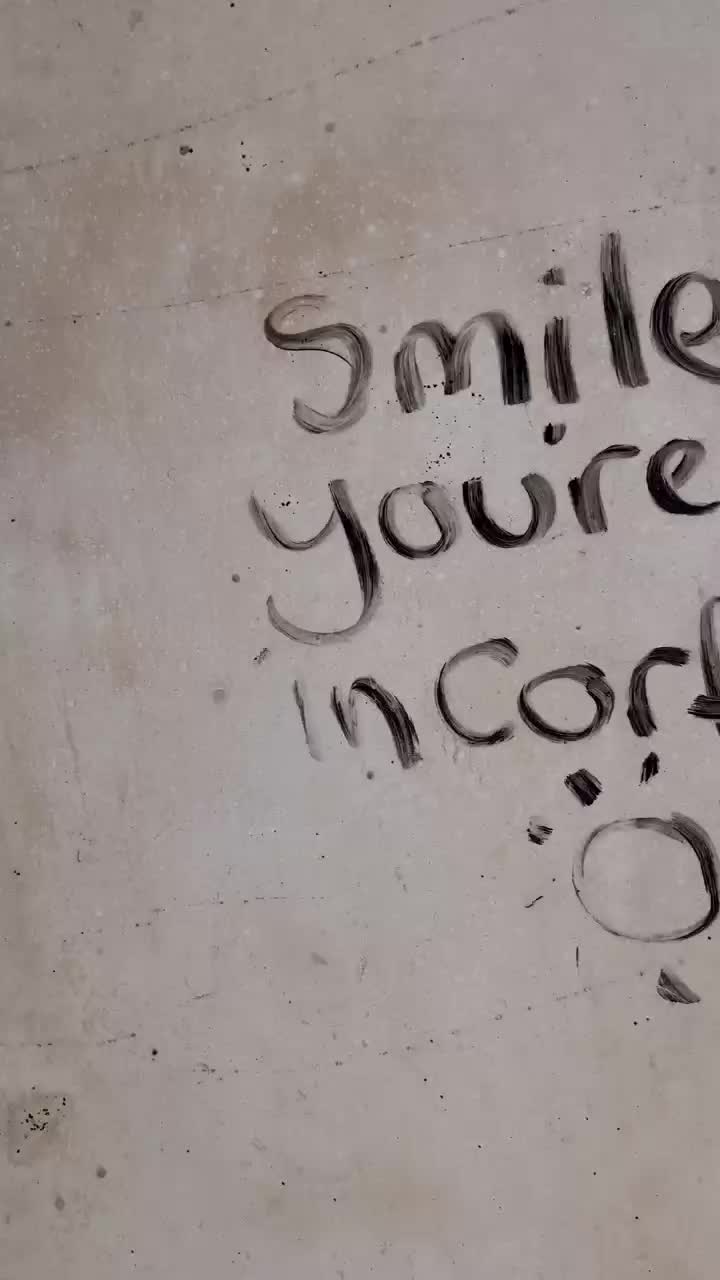 Smile
you're
in Corf